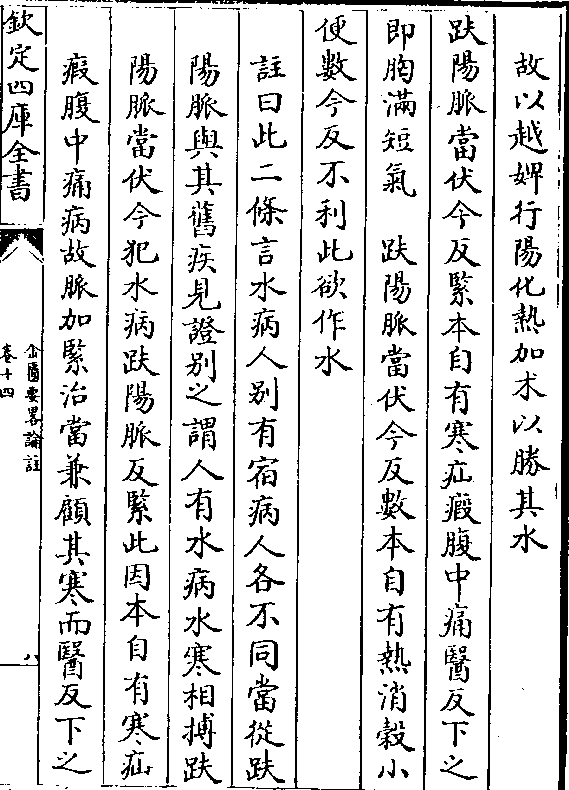 故以越婢行陽化熱加术以勝其水
趺陽脈當伏今反緊本自有寒疝瘕腹中痛醫反下之
即胸滿短氣　趺陽脈當伏今反數本自有熱消穀小
便數今反不利此欲作水
註曰此二條言水病人別有宿病人各不同當從趺
陽脈與其舊疾見證別之謂人有水病水寒相搏趺
陽脈當伏今犯水病趺陽脈反緊此因本自有寒疝
瘕腹中痛病故脈加緊治當兼顧其寒而醫反下之
欽定四庫全書
金匱要畧論註
卷十四
八